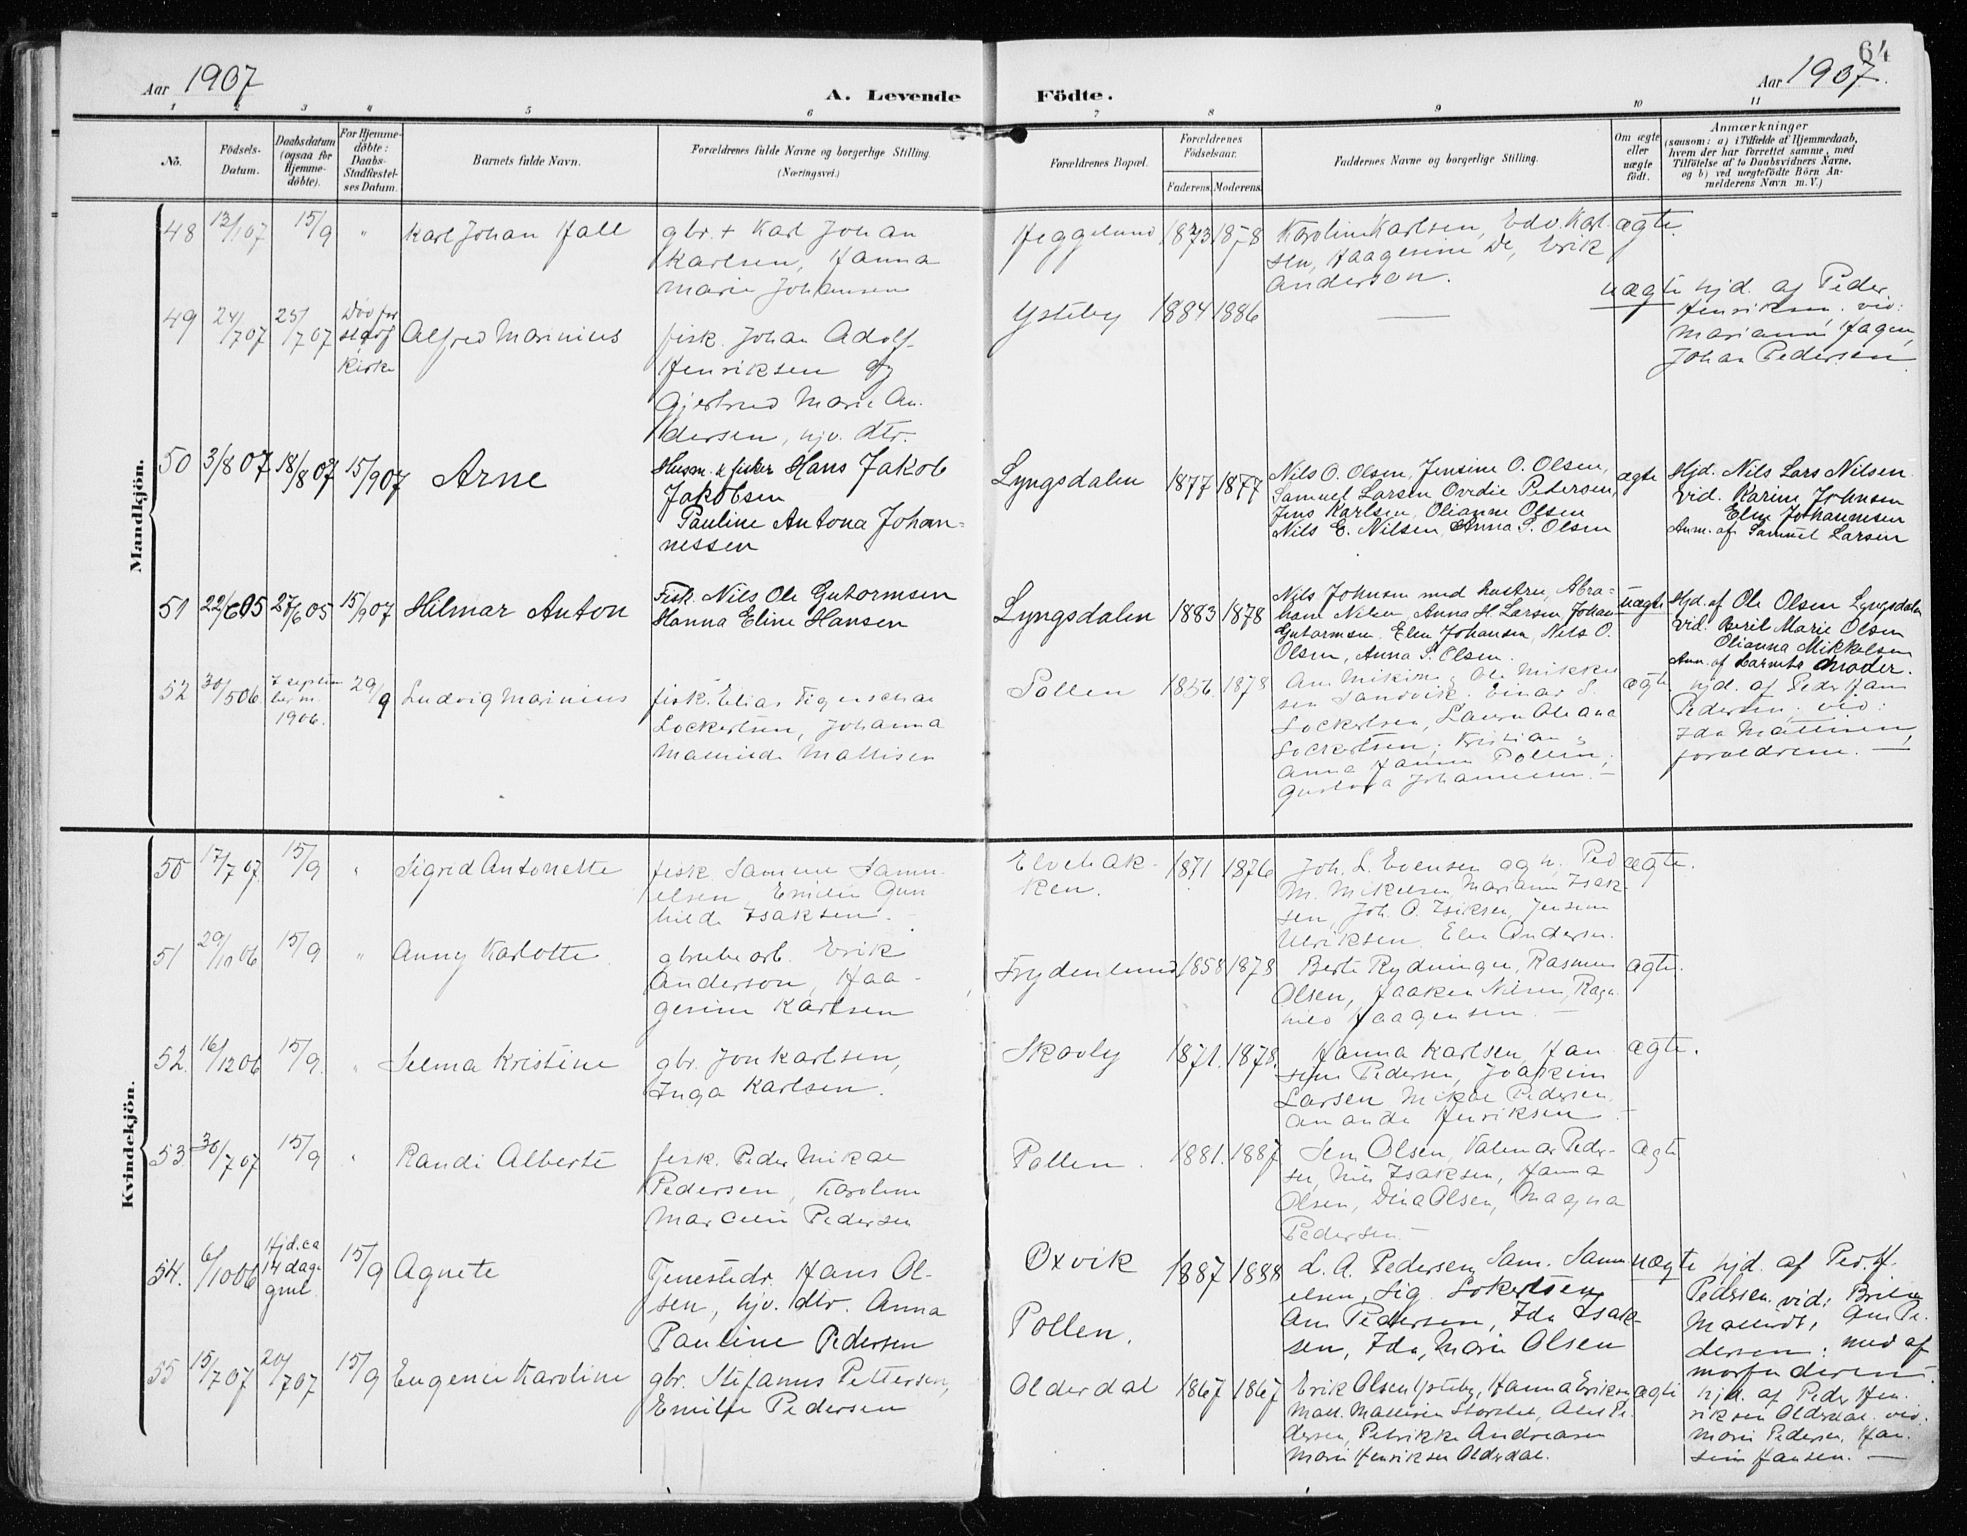 Aar 1907
A. Levende
Födte.
Aar 1907.
64
1 2 3 4 5 6 7 8 9 10 11
No.
Födsels-
Datum.
Daabsdatum
(ogsaa for
Hjemme-
döbte).
For Hjemme-
döbte:
Daabs-
Stadfæstel-
ses Datum.
Barnets fulde Navn.
Forældrenes fulde Navne og borgerlige Stilling.
(Næringsvei.)
Forældrenes Bopæl.
Forældrenes
Födselsaar.
Faderens. Moderens.
Faddernes Navne og borgerlige Stilling.
Om ægte
eller
uægte
födt.
Anmærkninger
(saasom: a) i Tilfælde af Hjemmedaab,
hvem der har forrettet samme, med
Tilföielse af to Daabsvidners Navne,
og b) ved uægtefödte Börn An-
melderens Navn m. V.)
Mandkjön.
48 13/1 07 15/9 " Karl Johan Hall
gbr. + Karl Johan
Karlsen, Hanna
Marie Johansen
Heggelund 1873 1878
Karoline Karlsen, Edv. Karl-
sen, Haagerine Do, Erik
Anderson.
ægte.
49 24/7 07 25/7 07
Død før
stadf
i
kirke
Alfred Marinius
fisk. Johan Adolf
Henriksen og
Gjertrud Marie An-
dersen, hjv. dtr.
Ysteby 1884 1886
—
uægte
hjd. af Peder
Henriksen. vid:
Marianne Hagen,
Johan Pedersen
50 3/8 07 18/8 07 15/9 07 Arne
Husm. & fisker Hans Jakob
Jakobsen
Pauline Antona Johan-
nessen
Lyngsdalen 1877 1877
Nils O. Olsen, Jensine O. Olsen,
Samuel Larsen Ovedie Petersen,
Jens Karlsen, Olianne Olsen
Nils E. Nilsen, Anna S. Olsen
ægte
Hjd. Nils Lars Nilsen
Vid. Karine Johnsen
Elen Johannesen
Anm. af Samuel Larsen
51 22/6 05 27/6 05 15/9 07 Hilmar Anton
Fisk. Nils Ole Gutormsen
Hanna Eline Hansen
Lyngsdalen 1883 1878
Nils Johnsen med hustru, Abra-
ham Nilsen, Anna H. Larsen, Johan
Gutormsen, Elen Johansen, Nils O.
Olsen, Anna S. Olsen
uægte
Hjd. af Ole Olsen Lyngsdalen
Vid. Beril Marie Olsen
Olianna Mikkelsen
Anm. af Barnets Moder.
52 30/5 06
7 septem
ber m.
1906.
29/9 Ludvig Marinius
fisk. Elias Figenschau
Lockertsen, Johanna
Mathilde Mathisen
Pollen 1856 1878
Sandvik. Einar S.
Lockertsen, Laura Oliana
Lockertsen, Kristian
Anna Hanna Pollen,
Gustava Johannesen. —
ægte
hjd. af Peder Hans
Pedersen, vid:
Ida Mathisen,
forældrene. —
Kvindekjön.
50 17/7 07. 15/9 " Sigrid Antonette
fisk. Samuel Samu-
elsen, Emilie Gun
hilde Isaksen. —
Elvebak-
ken. 1871 1876
Joh. L. Evensen og h. Ped
M. Mikelsen, Mariane Isak-
sen, Joh. O. Isaksen, Jensine
Ulriksen, Elen Andersen.
ægte.
51 29/10 06 15/9 " Anny Karlotte
grubearb. Erik
Anderson, Haa-
gerine Karlsen
Frydenlund 1858 1878
Berte Rydninger, Rasmus
Olsen, Haaken Nilsen, Ragn-
hild Haagensen. —
ægte.
52. 16/12 06 15/9. " Selma Kristine
gbr. Jon Karlsen,
Inga Karlsen.
Skovly 1871. 1878.
Hanna Karlsen, Han
sine Pedersen, Joakim
Larsen, Mikal Pedersen
Amanda Henriksen —
ægte.
53 30/7 07 15/9 " Randi Alberte
fisk. Peder Mikal
Pedersen, Karoline
Marcelie Pedersen
Pollen. 1881. 1887
Jens Olsen, Valemar Peder-
sen, Nils Isaksen, Hanna
Olsen, Dina Olsen, Magna
Pedersen —
ægte
54. 6/10 06
Hjd. ca
14 dage
gml.
15/9 Agnete
Tjenestedr. Hans Ol-
sen, hjv. dtr. Anna
Pauline Pedersen
Oxvik
Pollen. 1887 1888
L. A. Pedersen, Sam. Samu
elsen, Sig. Lokertsen
Am Pedersen, Ida Isak-
sen, Ida Marie Olsen
uægte
hjd. af Ped. H.
Pedersen. vid:
Mathisd,
dersen. med af
morfaderen. —
55 15/7 07 20/7 07 15/9 Eugenie Karoline
gbr. Stefanus Pettersen,
Emilie Pedersen
Olderdal 1867 1867
Erik Olsen Ysteby, Hanna Eriksen
Math. Mathisen Storslet, Alet Pe-
dersen, Petrikke Andreasen
Marie Henriksen Olderdal.
ægte
hjd. af Peder Hen-
riksen Olderdal. vid.
Marie Pedersen, Han-
sine Hansen. —